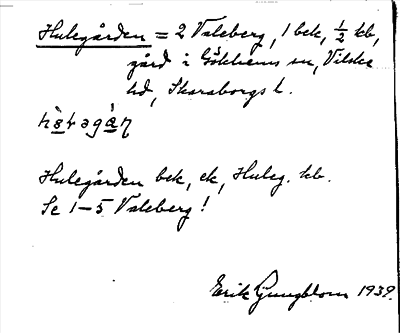 Hulegården = 2 Valeberg, 1 bek, ½ kb,
gård i Gökhems sn, Vilske
hd, Skaraborgs l.
Hulegården bek, ek, Huleg. kb.
Se 1–5 Valeberg!
Erik Ljungblom 1939.